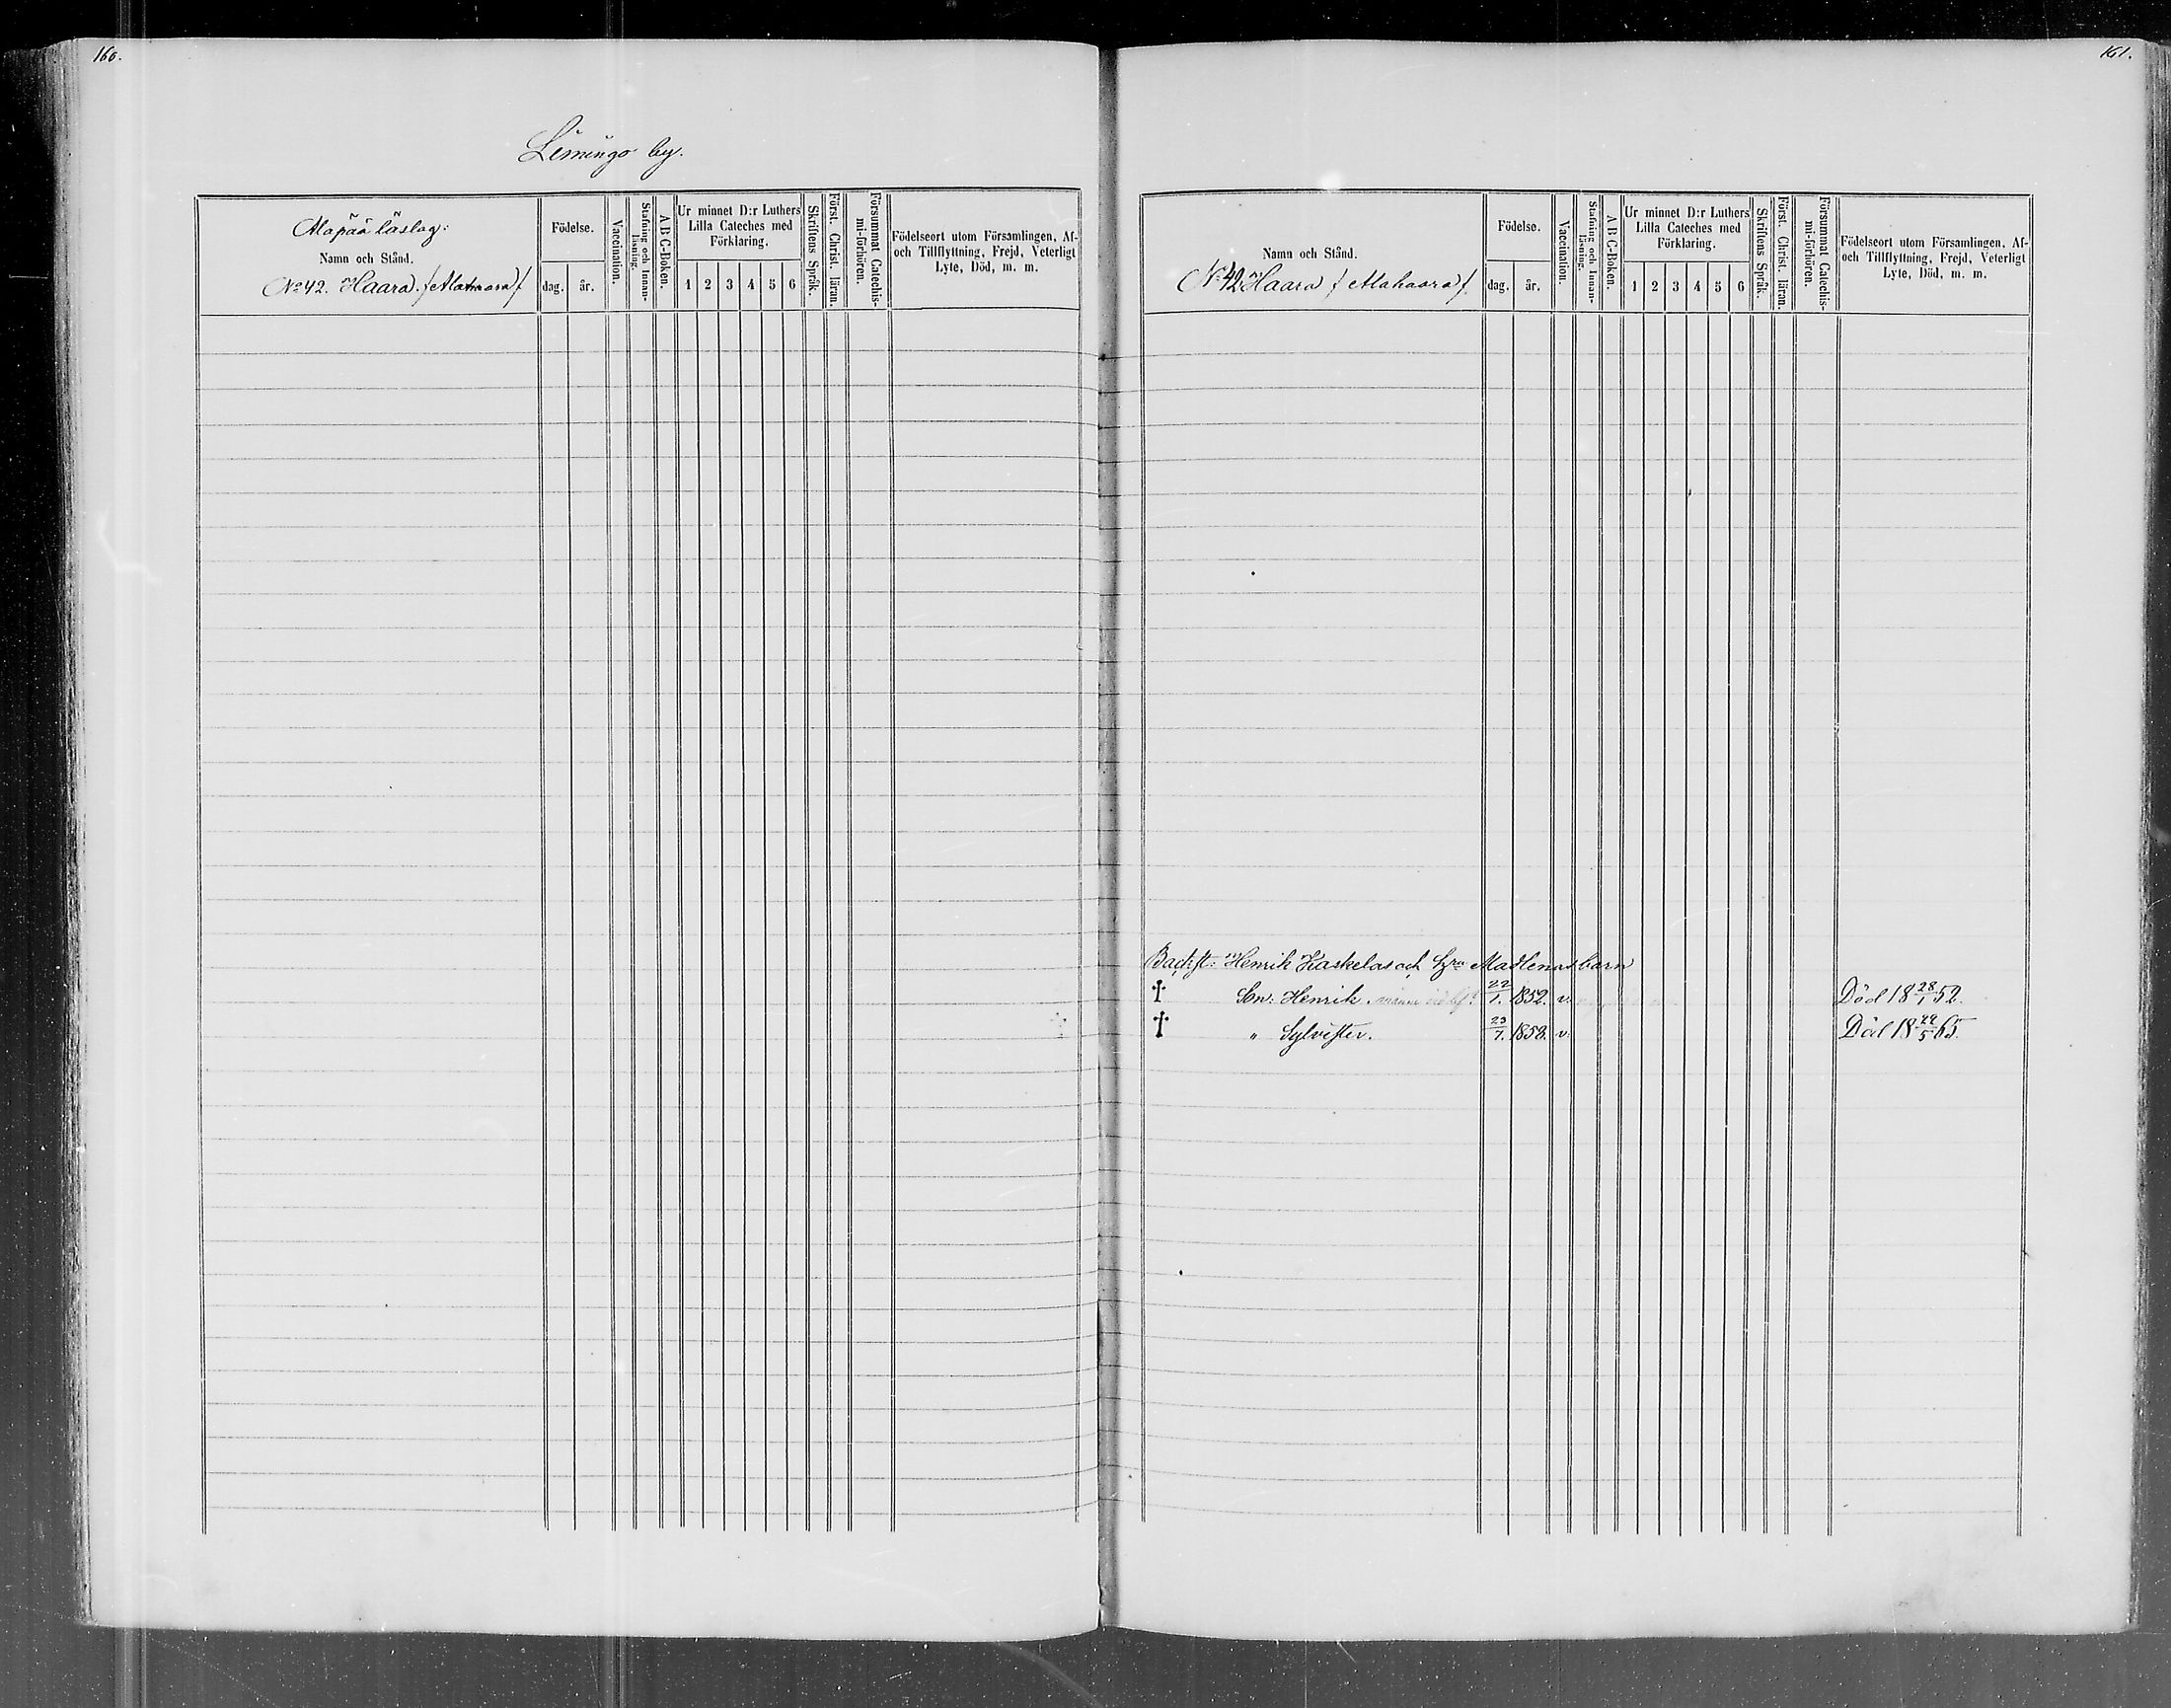 160.
Limingo by.
Alapää läslag:
Namn och Stånd.
No 42. Haara. /Alahaara/
Födelse.
dag. år.
Vaccination.
Stafning och Innan-läsning.
A B C-Boken.
Ur minnet D:r Luthers
Lilla Cateches med
Förklaring.
1 2 3 4 5 6
Skriftens Språk.
Först. Christ. läran.
Försummat Catechis-mi-förhören.
Födelseort utom Församlingen, Af-
och Tillflyttning, Frejd, Veterligt
Lyte, Död, m. m.
161.
Namn och Stånd.
No 42 Haara /Alahaara/
Födelse.
dag. år.
Vaccination.
Stafning och Innan-läsning.
A B C-Boken.
Ur minnet D:r Luthers
Lilla Cateches med
Förklaring.
1 2 3 4 5 6
Skriftens Språk.
Först. Christ. läran.
Försummat Catechis-mi-förhören.
Födelseort utom Församlingen, Af-
och Tillflyttning, Frejd, Veterligt
Lyte, Död, m. m.
Henrik Kaskelas och Madlenas barn
† Son: Henrik. 22/1. 1852. v. Död 18 28/1 52.
† " Sylvester. 23/7. 1858. v. Död 18 24/5 65.